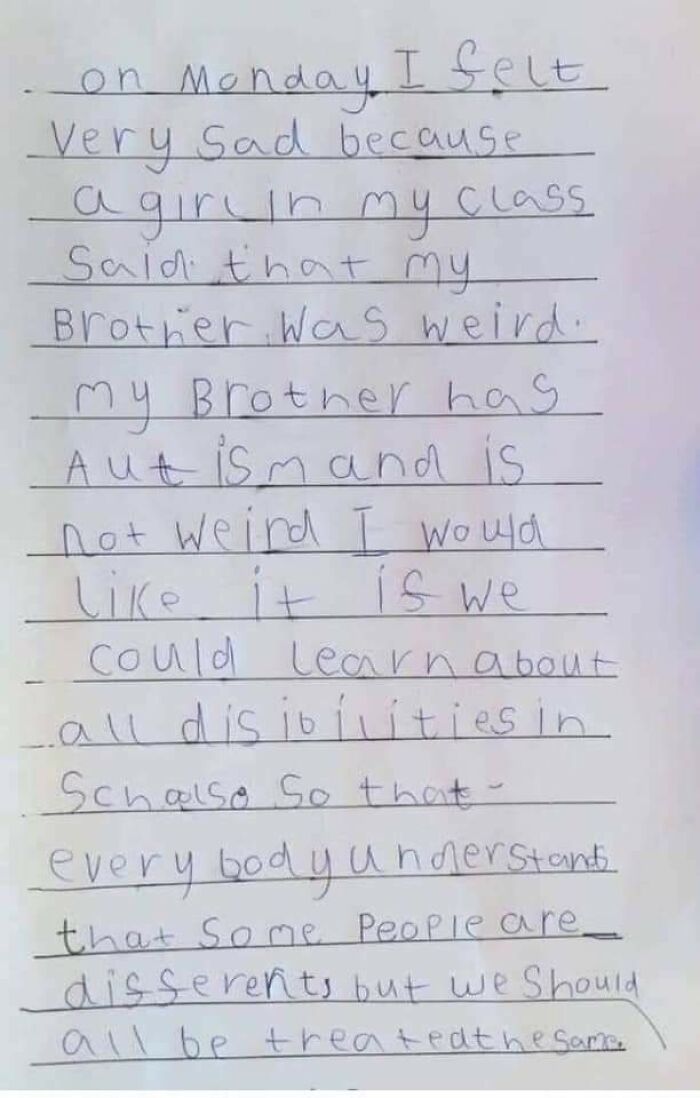 on Monday I felt
Very sad because
a girl in my class
said that my
Brother was weird.
my Brother has
Autism and is
not weird I would
like it if we
could learn about
all disibilities in
Schoolse so that
everybody understands
that some People are
differents but we should
all be treated the same.